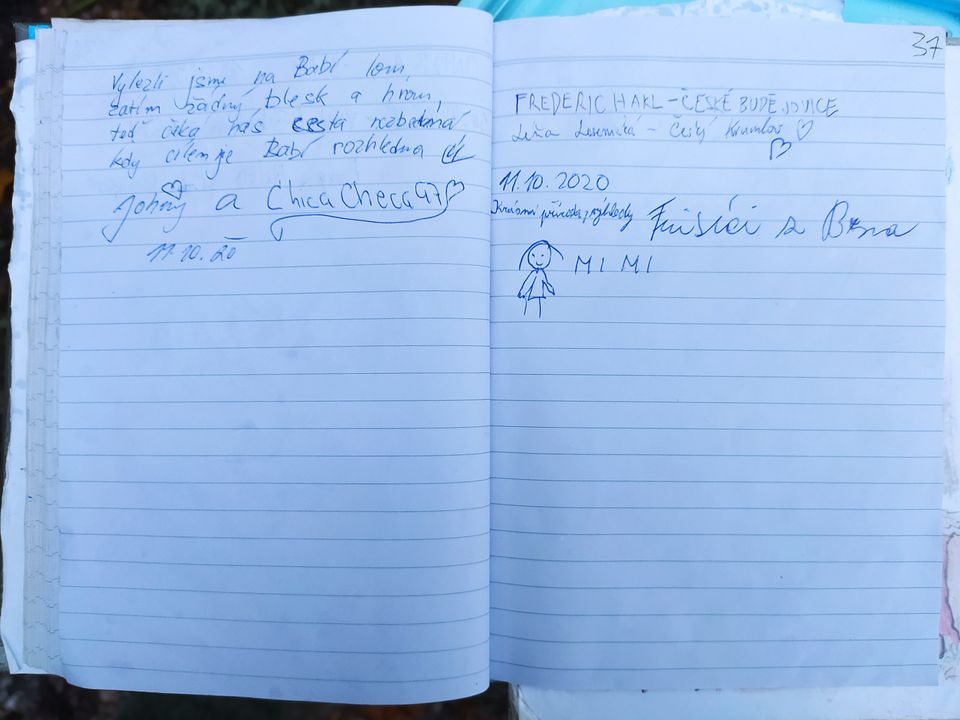 Vylezli jsme na Babí lom,
zatím žádný blesk a hrom,
teď čeká nás cesta
kdy cílem je Babí rozhledna
Johny a ChicaCheca47
11.10.20
37
FREDERIC HAKL - ČESKÉ BUDĚJOVICE
- Český Krumlov
11.10.2020
Krásná příroda, výhledy
z Brna
MIMI